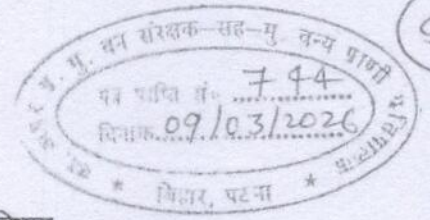 प्र. मु. वन संरक्षक-सह-मु. वन्य प्राणी
पत्र प्राप्ति सं० 744
दिनांक 09/03/2026
* बिहार, पटना *